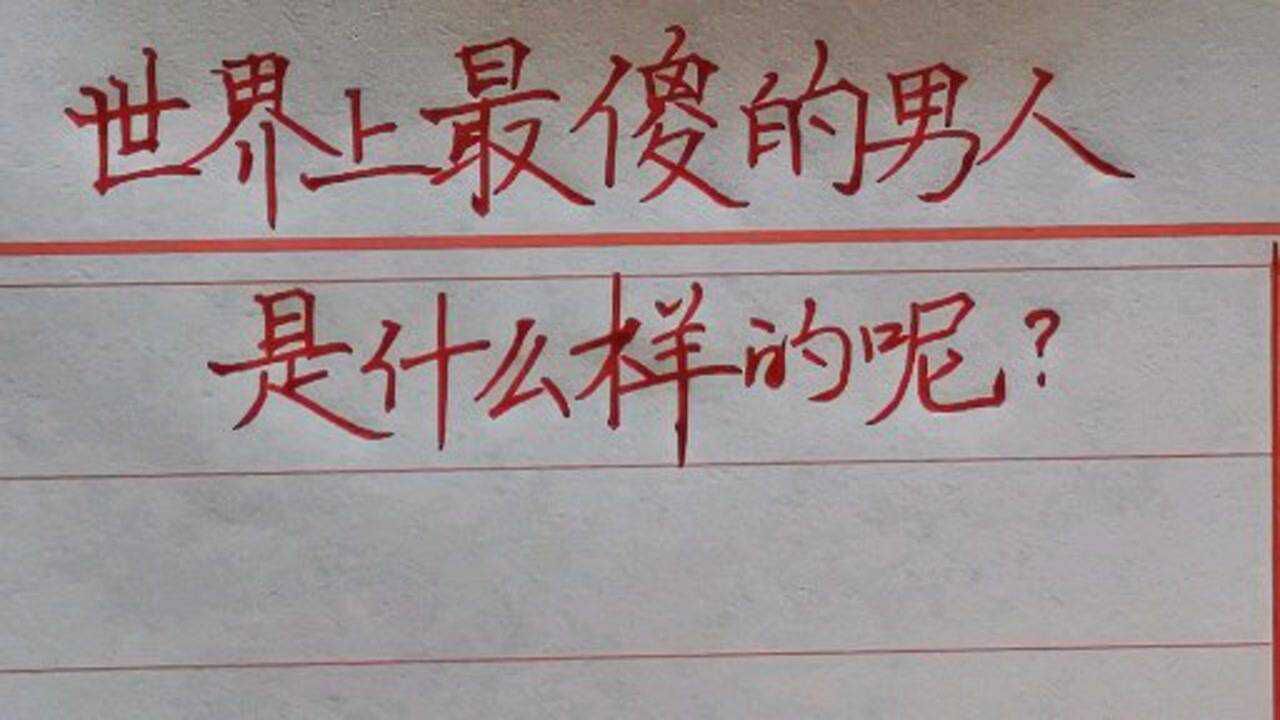 世界上最傻的男人
是什么样的呢?